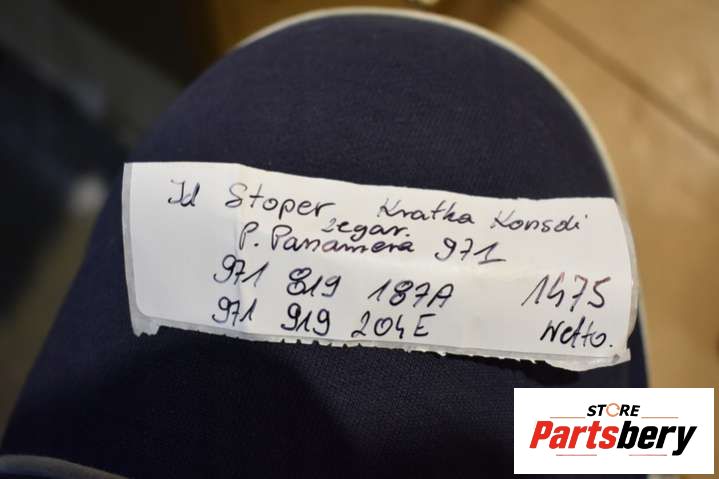 Id Stoper Kratka Konsoli
zegar.
P. Panamera 971
971 819 187A 1475
971 919 204E Netto.
STORE
Partsbery